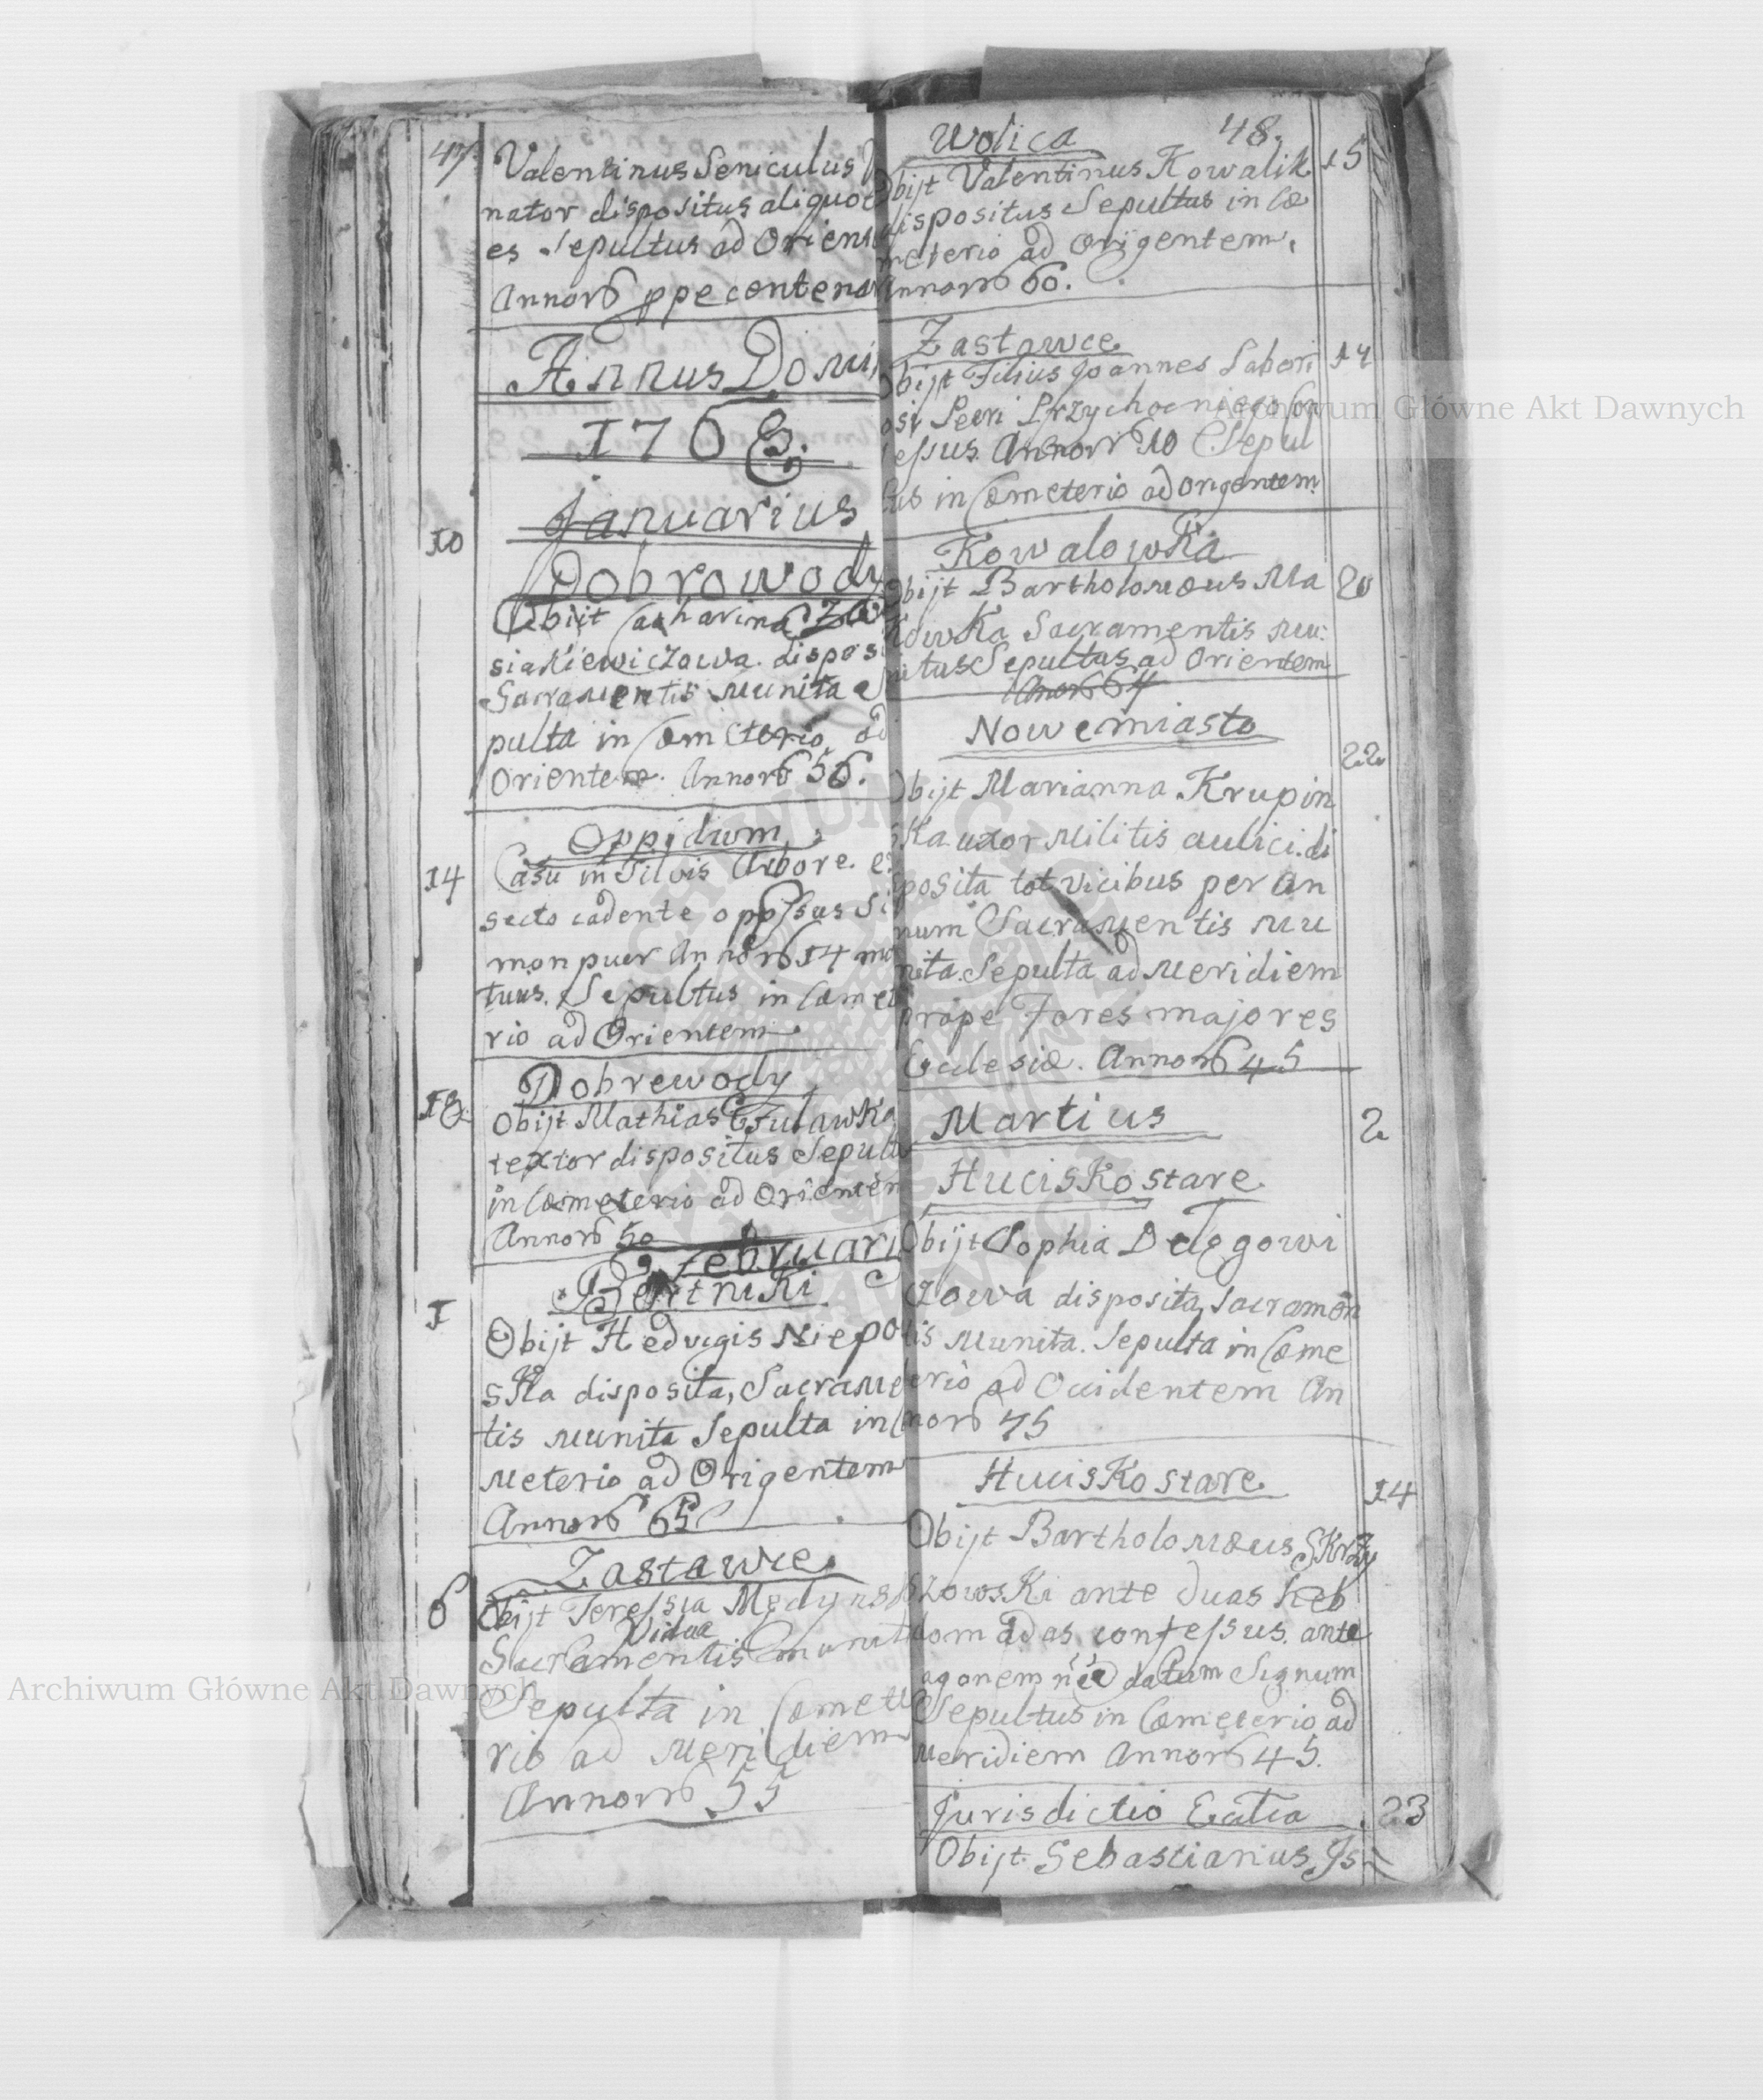 47
Valentinus Seniculus
nator dispositus aliquot
es Sepultus ad Orien
Annor ppe centena
Annus Domi
1768.
Januarius
10
Dobrowody
Obijt Catharina
siakiewiczowa. dispos
Sacramentis munita
pulta in Cœmeterio ad
Orientem. Annor 56.
Oppidum
14
Casu in Silvis Arbore. e
secto cadente oppssus Si
mon puer Annor 14 mor
tuus. Sepultus in Cœmet
rio ad Orientem
Dobrewody
18
Obijt Mathias
textor dispositus Sepultu
in Cœmeterio ad Orientem
Annor 50
Februari
Bertniki
1
Obijt Hedvigis Niepo
ska disposita, Sacrame
tis munita Sepulta in
meterio ad Origentem
Annor 65
Zastawce
6
Obijt Teressia Medyns
Vidua
Sacramentis munit
Sepulta in Cœmete
rio ad Meridiem
Annor 55
Wolica
48.
Obijt Valentinus Kowalik
15
dispositus Sepultus in Cœ
meterio ad Origentem.
Annor 60.
Zastawce
Obijt Filius Joannes Labori
14
osi Petri Przychocniego Con
fessus. Annor 10 Sepul
tus in Cœmeterio ad Origentem
Kowalowka
Obijt Bartholomœus Ma
20
kowka Sacramentis mu:
nitus Sepultus ad Orientem
Annor 64
Nowemiasto
22
Obijt Marianna Krupin
ska uxor Militis aulici. di
sposita tot vicibus per an
num Sacramentis mu
nita. Sepulta ad Meridiem
prope Fores majores
Ecclesiæ. Annor 45
Martius
2
Hucisko stare
Obijt Sophia
zowa disposita, Sacramen
tis munita. Sepulta in Cœme
terio ad Occidentem An
nor 75
Hucisko stare
14
Obijt Bartholomœus Skrzy
szowski ante duas heb
domadas confessus. ante
agonem datum Signum
Sepultus in Cœmeterio ad
Meridiem Annor 45.
Jurisdictio
23
Obijt Sebastianus Js
Archiwum Główne Akt Dawnych
Archiwum Główne Akt Dawnych